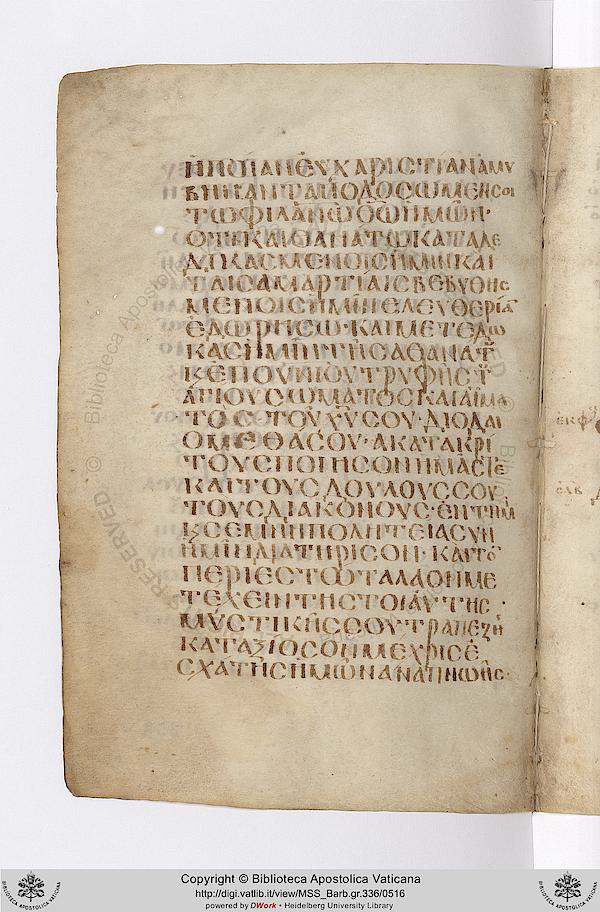 Η ΠΟΙΑΝ ΕΥΧΑΡΙCΤΙΑΝ ΑΜΥ
ΒΗΝ ΑΝΤΑΠΟΔΟCΩΜΕΝ CΟΙ
ΤΩ ΦΙΛΑΝΩ ΘΩ ΗΜΩΝ·
ΟΤΙ ΚΑΙ ΘΑΝΑΤΩ ΚΑΤΑΔΕ
ΔΙΚΑCΜΕΝΟΙC ΗΜΙΝ ΚΑΙ
ΤΑΙC ΑΜΑΡΤΙΑΙC ΒΕΒΥΘΗC
ΜΕΝΟΙC ΗΜΙΝ ΕΛΕΥΘΕΡΙΑ
ΕΔΩΡΗCΩ· ΚΑΙ ΜΕΤΕΔΩ
ΚΑC ΗΜΙΝ ΤΗC ΑΘΑΝΑΤȢ
Κ ΕΠΟΥΝΙΟΥ ΤΡΥΦΗC ΤȢ
ΑΓΙΟΥ CΩΜΑΤΟC ΚΑΙ ΑΙΜΑ
ΤΟC ΤΟΥ ΧΥ CΟΥ· ΔΙΟ ΔΑΙ
ΟΜΕΘΑ CΟΥ· ΑΚΑΤΑΚΡΙ
ΤΟΥC ΠΟΙΗCΟΝ ΗΜΑC ΤΕ
ΚΑΙ ΤΟΥC ΔΟΥΛΟΥC CΟΥ
ΤΟΥC ΔΙΑΚΟΝΟΥC· ΕΝ ΤΗΜΗ
Κ CΕΜΝΗ ΠΟΛΗΤΕΙΑ CΥΝ
ΗΜΙΝ ΔΙΑΤΗΡΙCΟΝ· ΚΑΙ ΤΟ
ΠΕΡΙΕCΤΩΤΑ ΛΑΟΝ ΜΕ
ΤΕΧΕΙΝ ΤΗC ΤΟΙΑΥΤΗC·
ΜΥCΤΙΚΗC CΟΥ ΤΡΑΠΕΖΗC
ΚΑΤΑΞΙΟCΟΝ ΜΕΧΡΙC Ε
CΧΑΤΗC ΗΜΩΝ ΑΝΑΠΝΩΗC·
Copyright © Biblioteca Apostolica Vaticana
http://digi.vatlib.it/view/MSS_Barb.gr.336/0516
powered by DWork · Heidelberg University Library